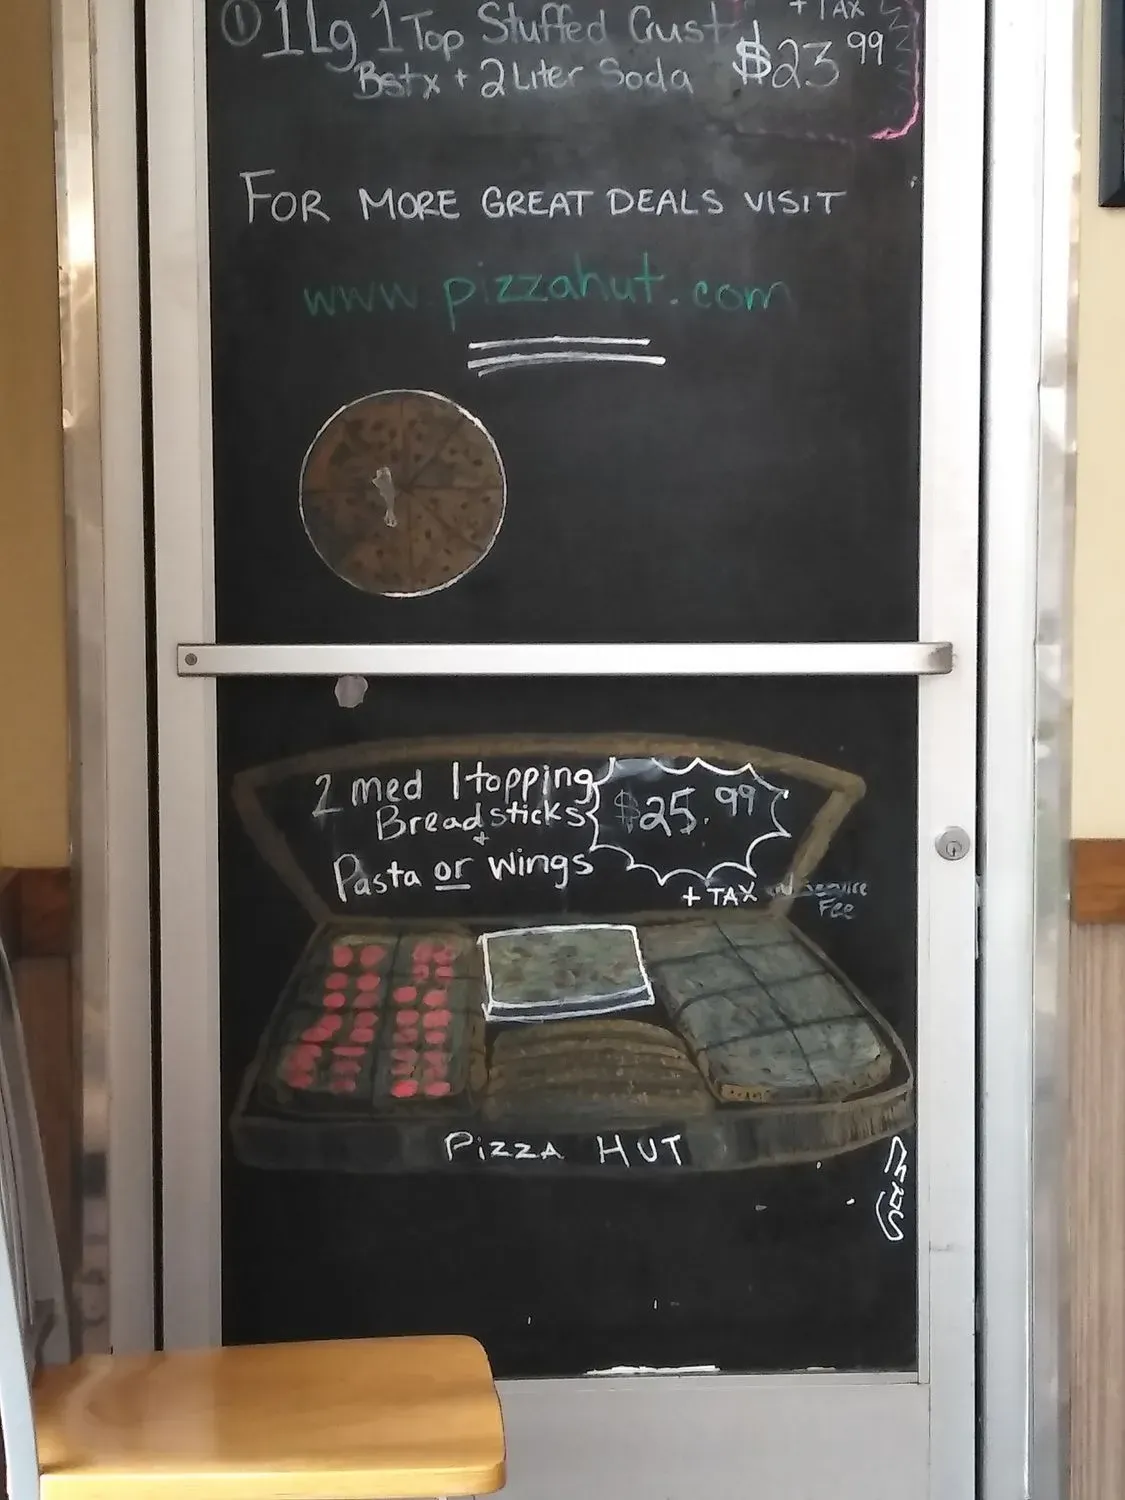 ① 1Lg 1Top Stuffed Crust
+ TAX
$23 99
Bstx + 2 Liter Soda
FOR MORE GREAT DEALS VISIT
www.pizzahut.com
2 med 1 topping
Breadsticks
+
Pasta or Wings
$25.99
+ TAX and service
Fee
PIZZA HUT